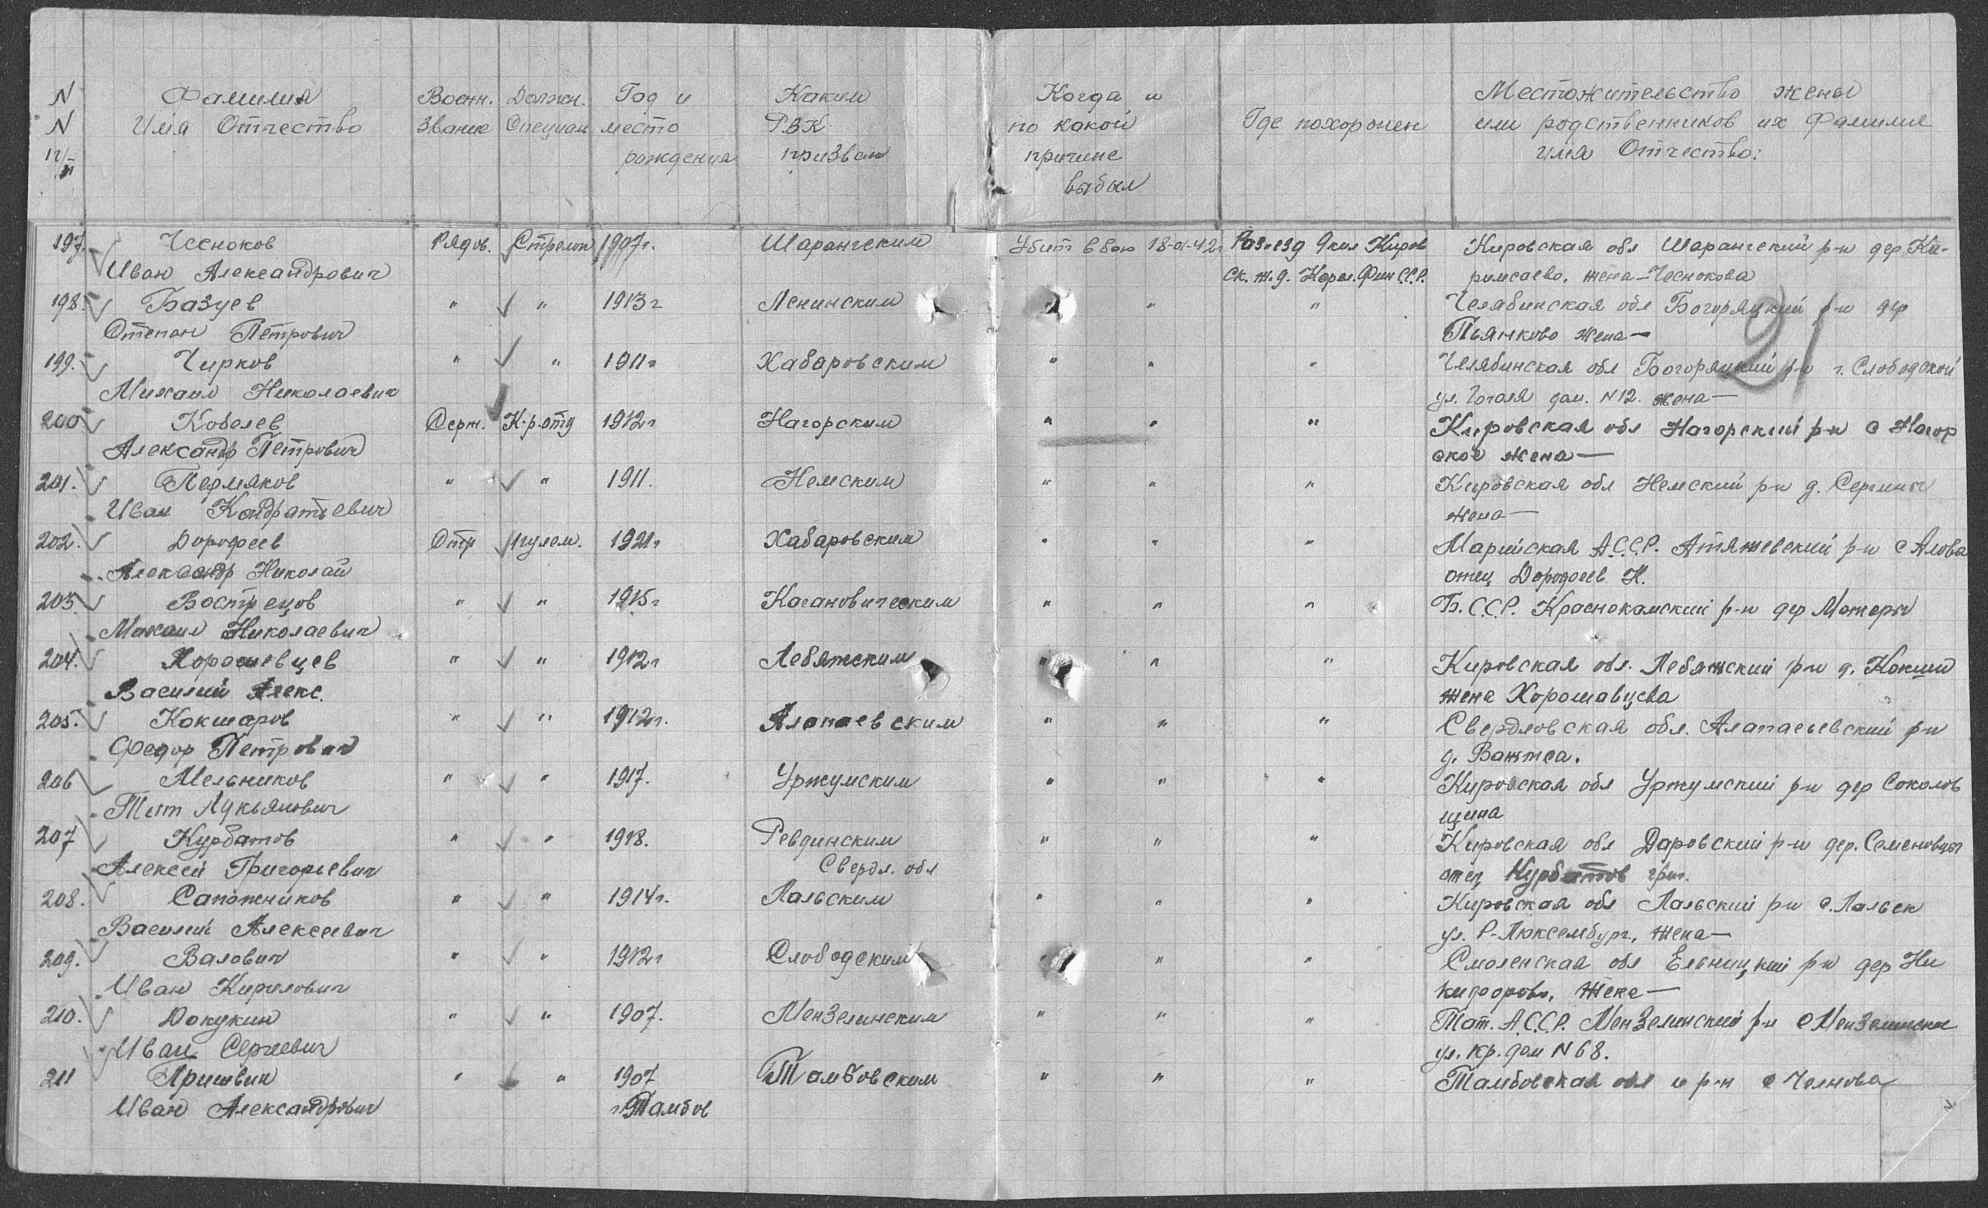 N
N
п/п
Фамилия
Имя Отчество
Военн.
Звание
Должн.
Специал
Год и
место
рождения
Каким
РВК
призван
Когда и
по какой
причине
выбыл
Где похоронен
Местожительство жены
или родственников их Фамилия
имя Отчество:
197. Чесноков Рядов. Стрелок 1907г. Шарангским Убит в бою 18-01-42г. Раз'езд 9 км Киров Кировская обл Шарангский р-н дер. Ка-
Иван Александрович ск. ж.д. Карел. Фин ССР. римсаево, жена - Чеснокова
198. Базуев " " 1913г Ленинским " " " Челябинская обл Богоряцкий р-н дер
Степан Петрович Пьянково жена —
199. Чирков " " 1911г Хабаровским " " " Челябинская обл Богоряцкий р-н г. Слободской
Михаил Николаевич ул. Гоголя дом. N12. жена —
200 Кобелев Серж. К-р отд 1912г Нагорским " " " Кировская обл Нагорский р-н с Нагор
Александр Петрович ское жена —
201. Пермяков " " 1911. Немским " " " Кировская обл Немский р-н д. Сергины
Иван Кондратьевич жена —
202. Дорофеев Стр пулем. 1921г Хабаровским " " " Марийская А.С.С.Р. Атяшевский р-н с Алова
Александр Николай отец Дорофеев Н.
203 Вострецов " " 1915г Кагановическим " " " Б.С.С.Р. Краснокамский р-н дер Матери
Михаил Николаевич
204. Хорошевцев " " 1912г Лебяжским " " " Кировская обл. Лебяжский р-н д. Кокши
Василий Алекс. жена Хорошавцева
205. Кокшаров " " 1912г. Алапаевским " " " Свердловская обл. Алапаевский р-н
Федор Петрович д.
206 Мельников " " 1917. Уржумским " " " Кировская обл Уржумский р-н дер Соколов
Тит Лукьянович щина
207 Курбатов " " 1918. Ревдинским " " " Кировская обл Даровский р-н дер. Семеновцы
Алексей Григорьевич Свердл. обл отец Курбатов Григ.
208. Сапожников " " 1914г. Лальским " " " Кировская обл Лальский р-н с. Лальск
Василий Алексеевич ул. Р-Люксембург, жена —
209. Валович " " 1912г Слободским " " Смоленская обл Ельницкий р-н дер Ни
Иван Кирилович кифорово, жена —
210. Докукин " " 1907. Мензелинским " " " Тат. А.С.С.Р. Мензелинский р-н с Мензелинск
Иван Сергеевич ул. Кр. дом N 68.
211 Пришвин " " 1907 Тамбовским " " " Тамбовская обл и р-н с Челнова
Иван Александрович г Тамбов
21